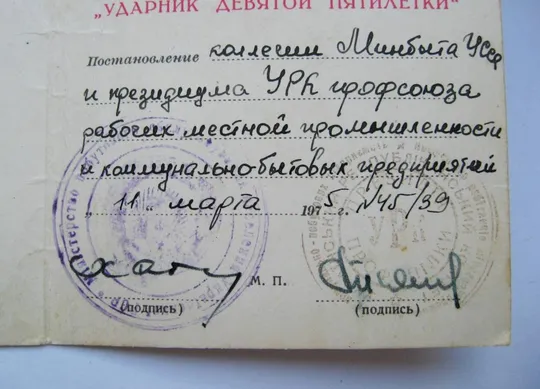 "УДАРНИК ДЕВЯТОЙ ПЯТИЛЕТКИ"
Постановление коллегии Минбыта УССР
и президиума УРК профсоюза
рабочих местной промышленности
и коммунально-бытовых предприятий
„ 11 " марта 1975 г. №45/39
М. П.
(подпись) (подпись)